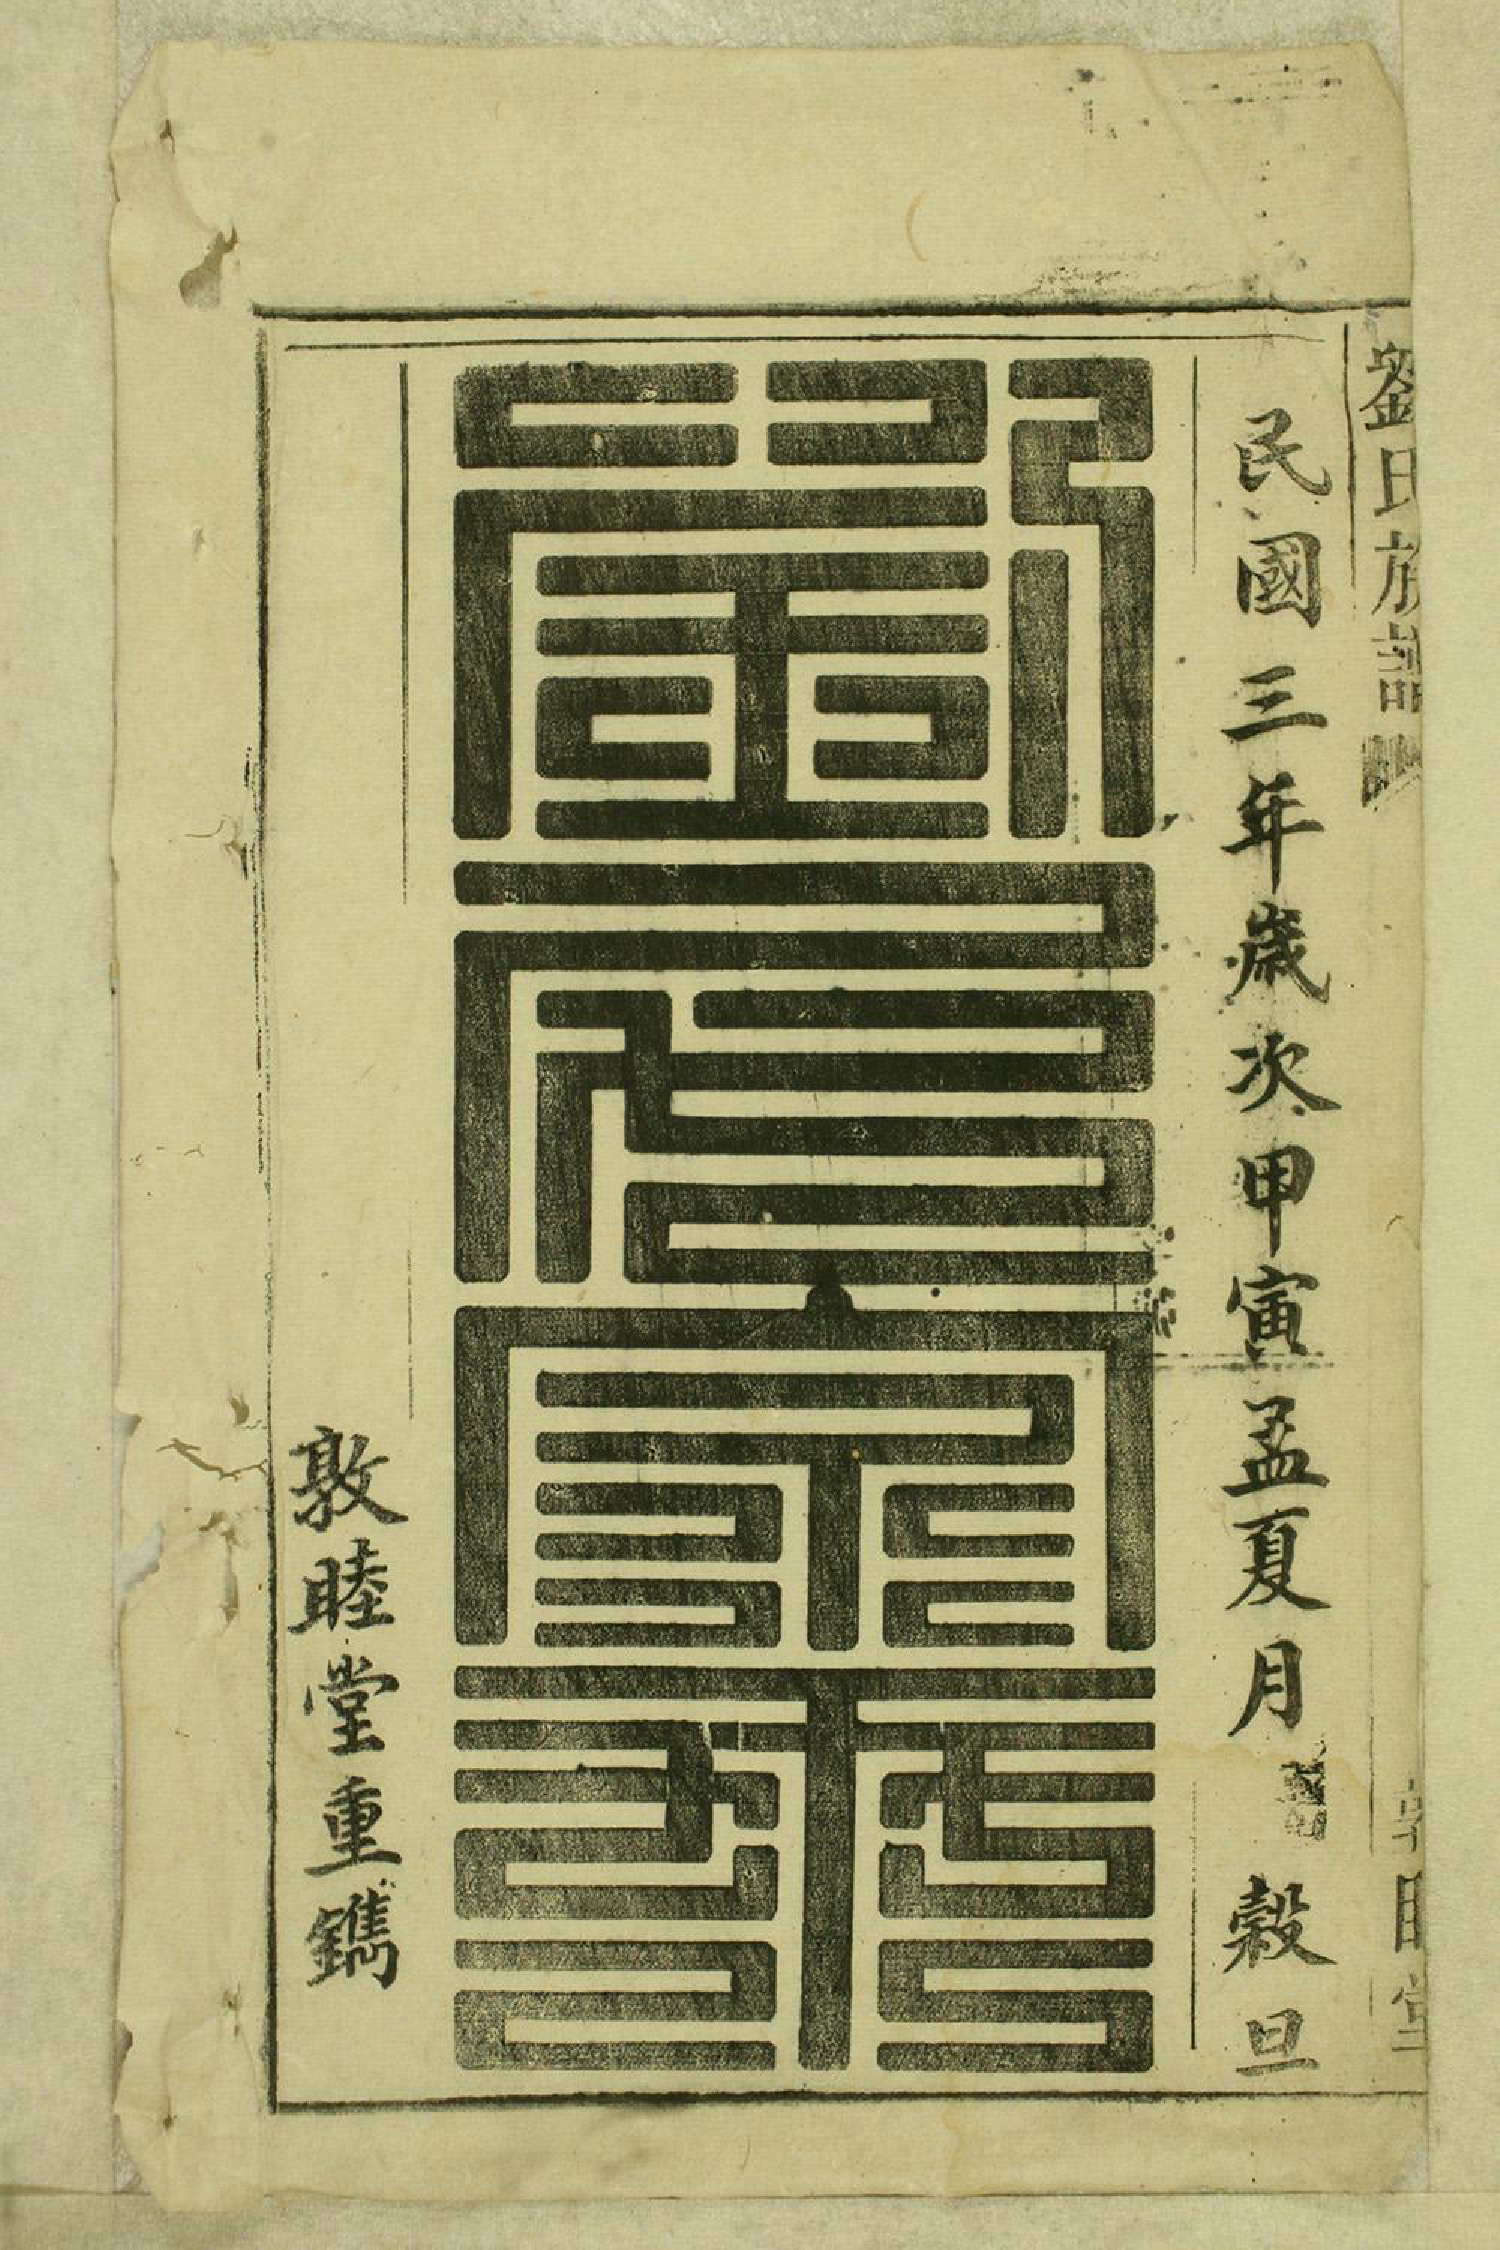 劉氏族譜
敦睦堂
民國三年歲次甲寅孟夏月 穀旦
劉氏家乘
敦睦堂重鐫